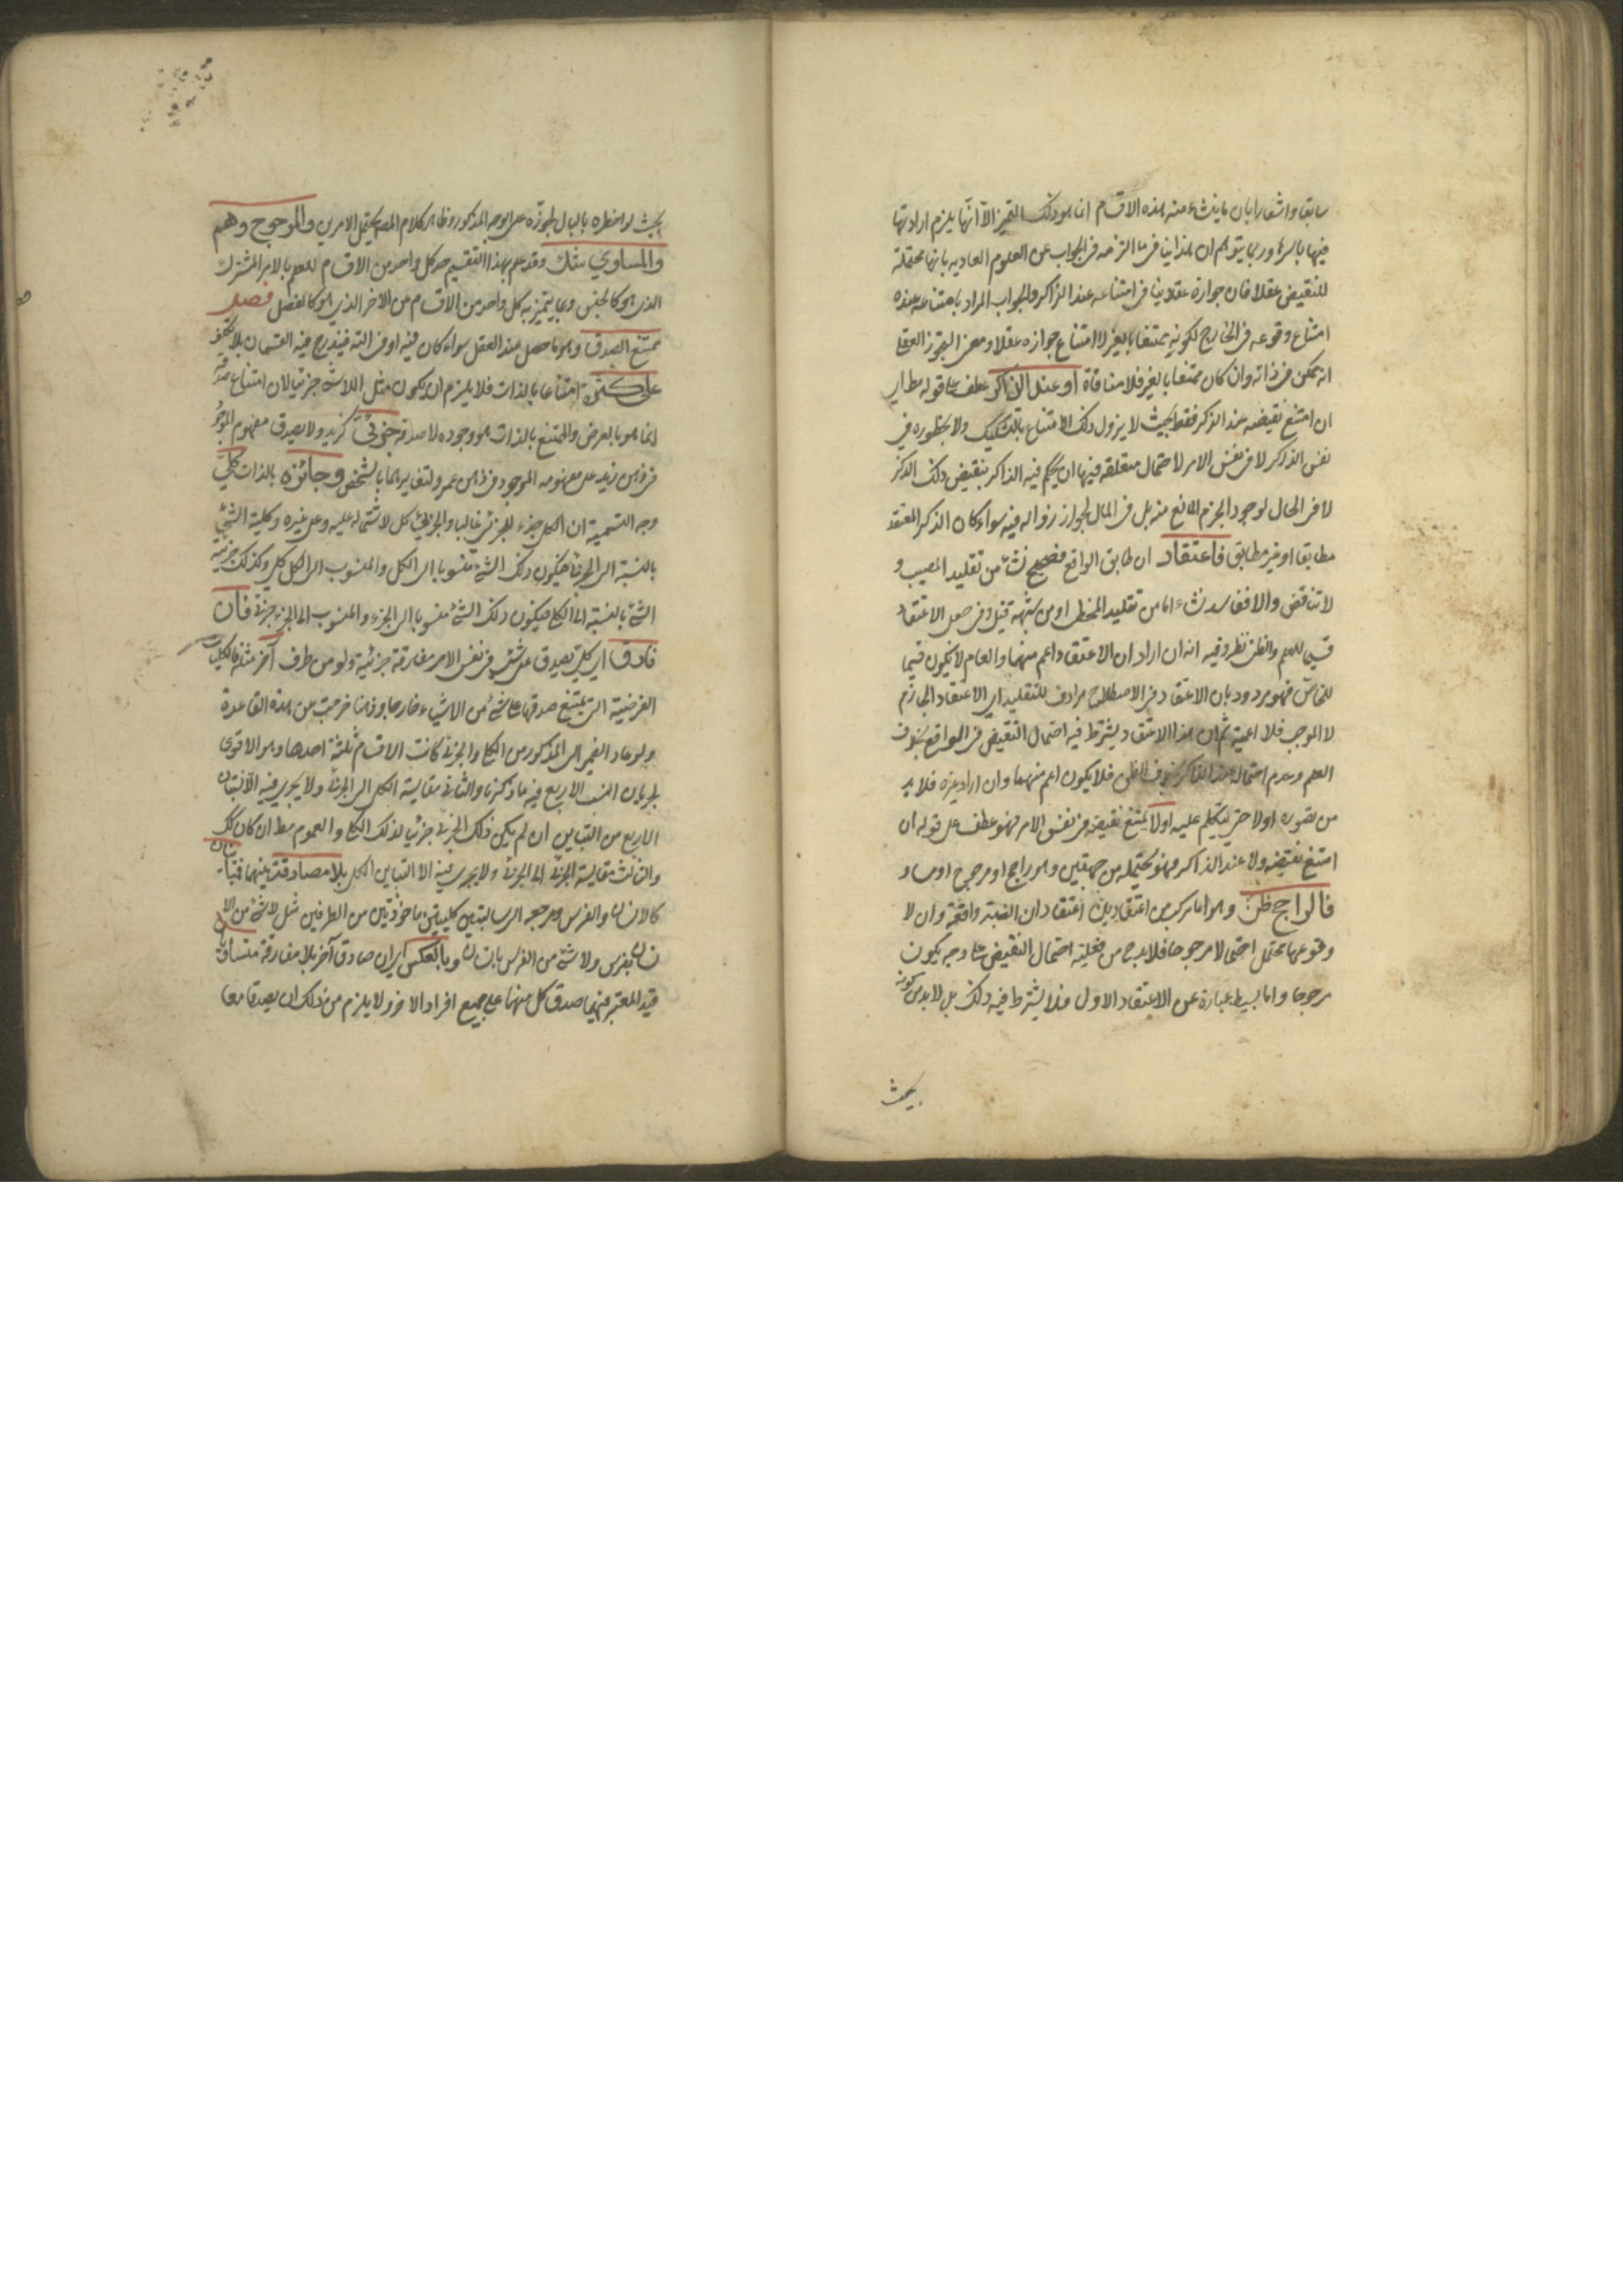 سابقا واشعارا بان ما ينشاء منه هذه الاقسام انما هو ذلك التميز الا انها يلزم ارادتها
فيها باسرها وربما يتوهم ان هذا ينافي ما التزمه في الجواب عن العلوم العاديه بانها محتملة
للنقيض عقلا فان جوازه عقلا ينافي امتناعه عند الذاكر والجواب المراد بامتناعه عنده
امتناع وقوعه في الخارج لكونه ممتنعا بالغير لا امتناع جوازه عقلا ومعنى التجوز العقلي
انه ممكن في ذاته وان كان ممتنعا بالغير فلا منافاة او عند الذاكر عطف على قوله مط اي
ان امتنع نقيضه عند الذكر فقط بحيث لا يزول ذلك الامتناع بالتشكيك ولا بخطوره في
نفس الذاكر لا في نفس الامر لاحتمال متعلقه فيها ان يحكم فيه الذاكر بنقيض ذلك الذكر
لا في الحال لوجود الجزم المانع منه بل في المال لجواز زواله فيه سواء كان الذكر المعتقد
مطابقا او غير مطابق فاعتقاد ان طابق الواقع فصحيح نشاء من تقليد المصيب و
لا تناقض والا ففاسد نشاء اما من تقليد المخطى او من شبهة قيل وفي جعل الاعتقاد
قسيما للعلم والظن نظر وفيه انه ان اراد ان الاعتقاد اعم منهما والعام لا يكون قسيما
للخاص فهو مردود بان الاعتقاد في الاصطلاح مرادف للتقليد اي الاعتقاد الجازم
لا الموجب فلا اعمية ثم ان هذا الاعتقاد يشترط فيه احتمال النقيض في الواقع بخلاف
العلم وعدم احتماله عند الذاكر بخلاف الظن فلا يكون اعم منهما وان اراد غيره فلا بد
من تصوره اولا حتى يتكلم عليه اولا يمتنع نقيضه في نفس الامر فهو عطف على قوله ان
امتنع نقيضه ولا عند الذاكر فهو محتمله من جهتين وهو راجح او مرجوح او مساو
فالراجح ظن وهو اما مركب من اعتقادين اعتقاد ان النسبة واقعة وان لا
وقوعها محتمل احتمالا مرجوحا فلا بد من فعلية احتمال النقيض على وجه يكون
مرجوحا واما بسيط عبارة عن الاعتقاد الاول فلا يشترط فيه ذلك بل لا بد من كونه
بحيث
بحيث لو اخطره بالبال لجوزه على الوجه المذكور وظاهر كلام المصـ يحتمل الامرين والمرجوح وهم
والمساوي شك وقد علم بهذا التقسيم حد كل واحد من الاقسام للعلم بالامر المشترك
الذي هو كالجنس وبما يتميز به كل واحد من الاقسام من الاخر الذي هو كالفصل فصل
ممتنع الصدق وهو ما حصل عند العقل سواء كان فيه او في الته فيندرج فيه القسمان بلا تكلف
على كثرة امتناعا بالذات فلا يلزم ان يكون مثل اللاشئ جزئيا لان امتناع صدقه
انما هو بالعرض والممتنع بالذات هو وجوده لا صدقه جزئي كزيد ولا يصدق مفهوم الموجود
في ذهن زيد على مفهومه الموجود في ذهن عمرو لتغايرهما بالشخص وجائزه بالذات كلي
وجه التسمية ان الكل جزء للجزئي غالبا والجزئي كل لاشتماله عليه وعلى غيره وكلية الشئ
بالنسبة الى الجزئي فيكون ذلك الشئ منسوبا الى الكل والمنسوب الى الكل كلي وكذلك جزئية
الشئ بالنسبة الى الكلي فيكون ذلك الشئ منسوبا الى الجزء والمنسوب الى الجزء جزئي فان
فارق اي كلي يصدق على شئ في نفس الامر مفارقة جزئية ولو من طرف آخر مثله فالكليات
الفرضية التي يمتنع صدقها على شئ من الاشياء خارجا وذهنا خرجت من هذه القاعدة
ولو عاد الضمير الى المذكور من الكلي والجزئي كانت الاقسام ثلثة احدها وهو الاقوى
لجريان النسب الاربع فيه ما ذكرنا والثاني مقايسة الكلي الى الجزئي ولا يجري فيه الا اثنتان
الاربع من التباين ان لم يكن ذلك الجزئي جزئيا لذلك الكلي والعموم مط ان كان كك
والثالث مقايسة الجزئي الى الجزئي ولا يجري فيه الا التباين الكلي بلا مصادقة بينهما فتباينان
كالانسان والفرس ومرجعه الى سالبتين كليتين ماخوذتين من الطرفين مثل لا شئ من الا
نسان بفرس ولا شئ من الفرس بانسان وبالعكس اي ان صادق آخر بلا مفارقة متساويان
قيد المعتبر فيهما صدق كل منهما على جميع افراد الاخر ولا يلزم من ذلك ان يصدقا معا